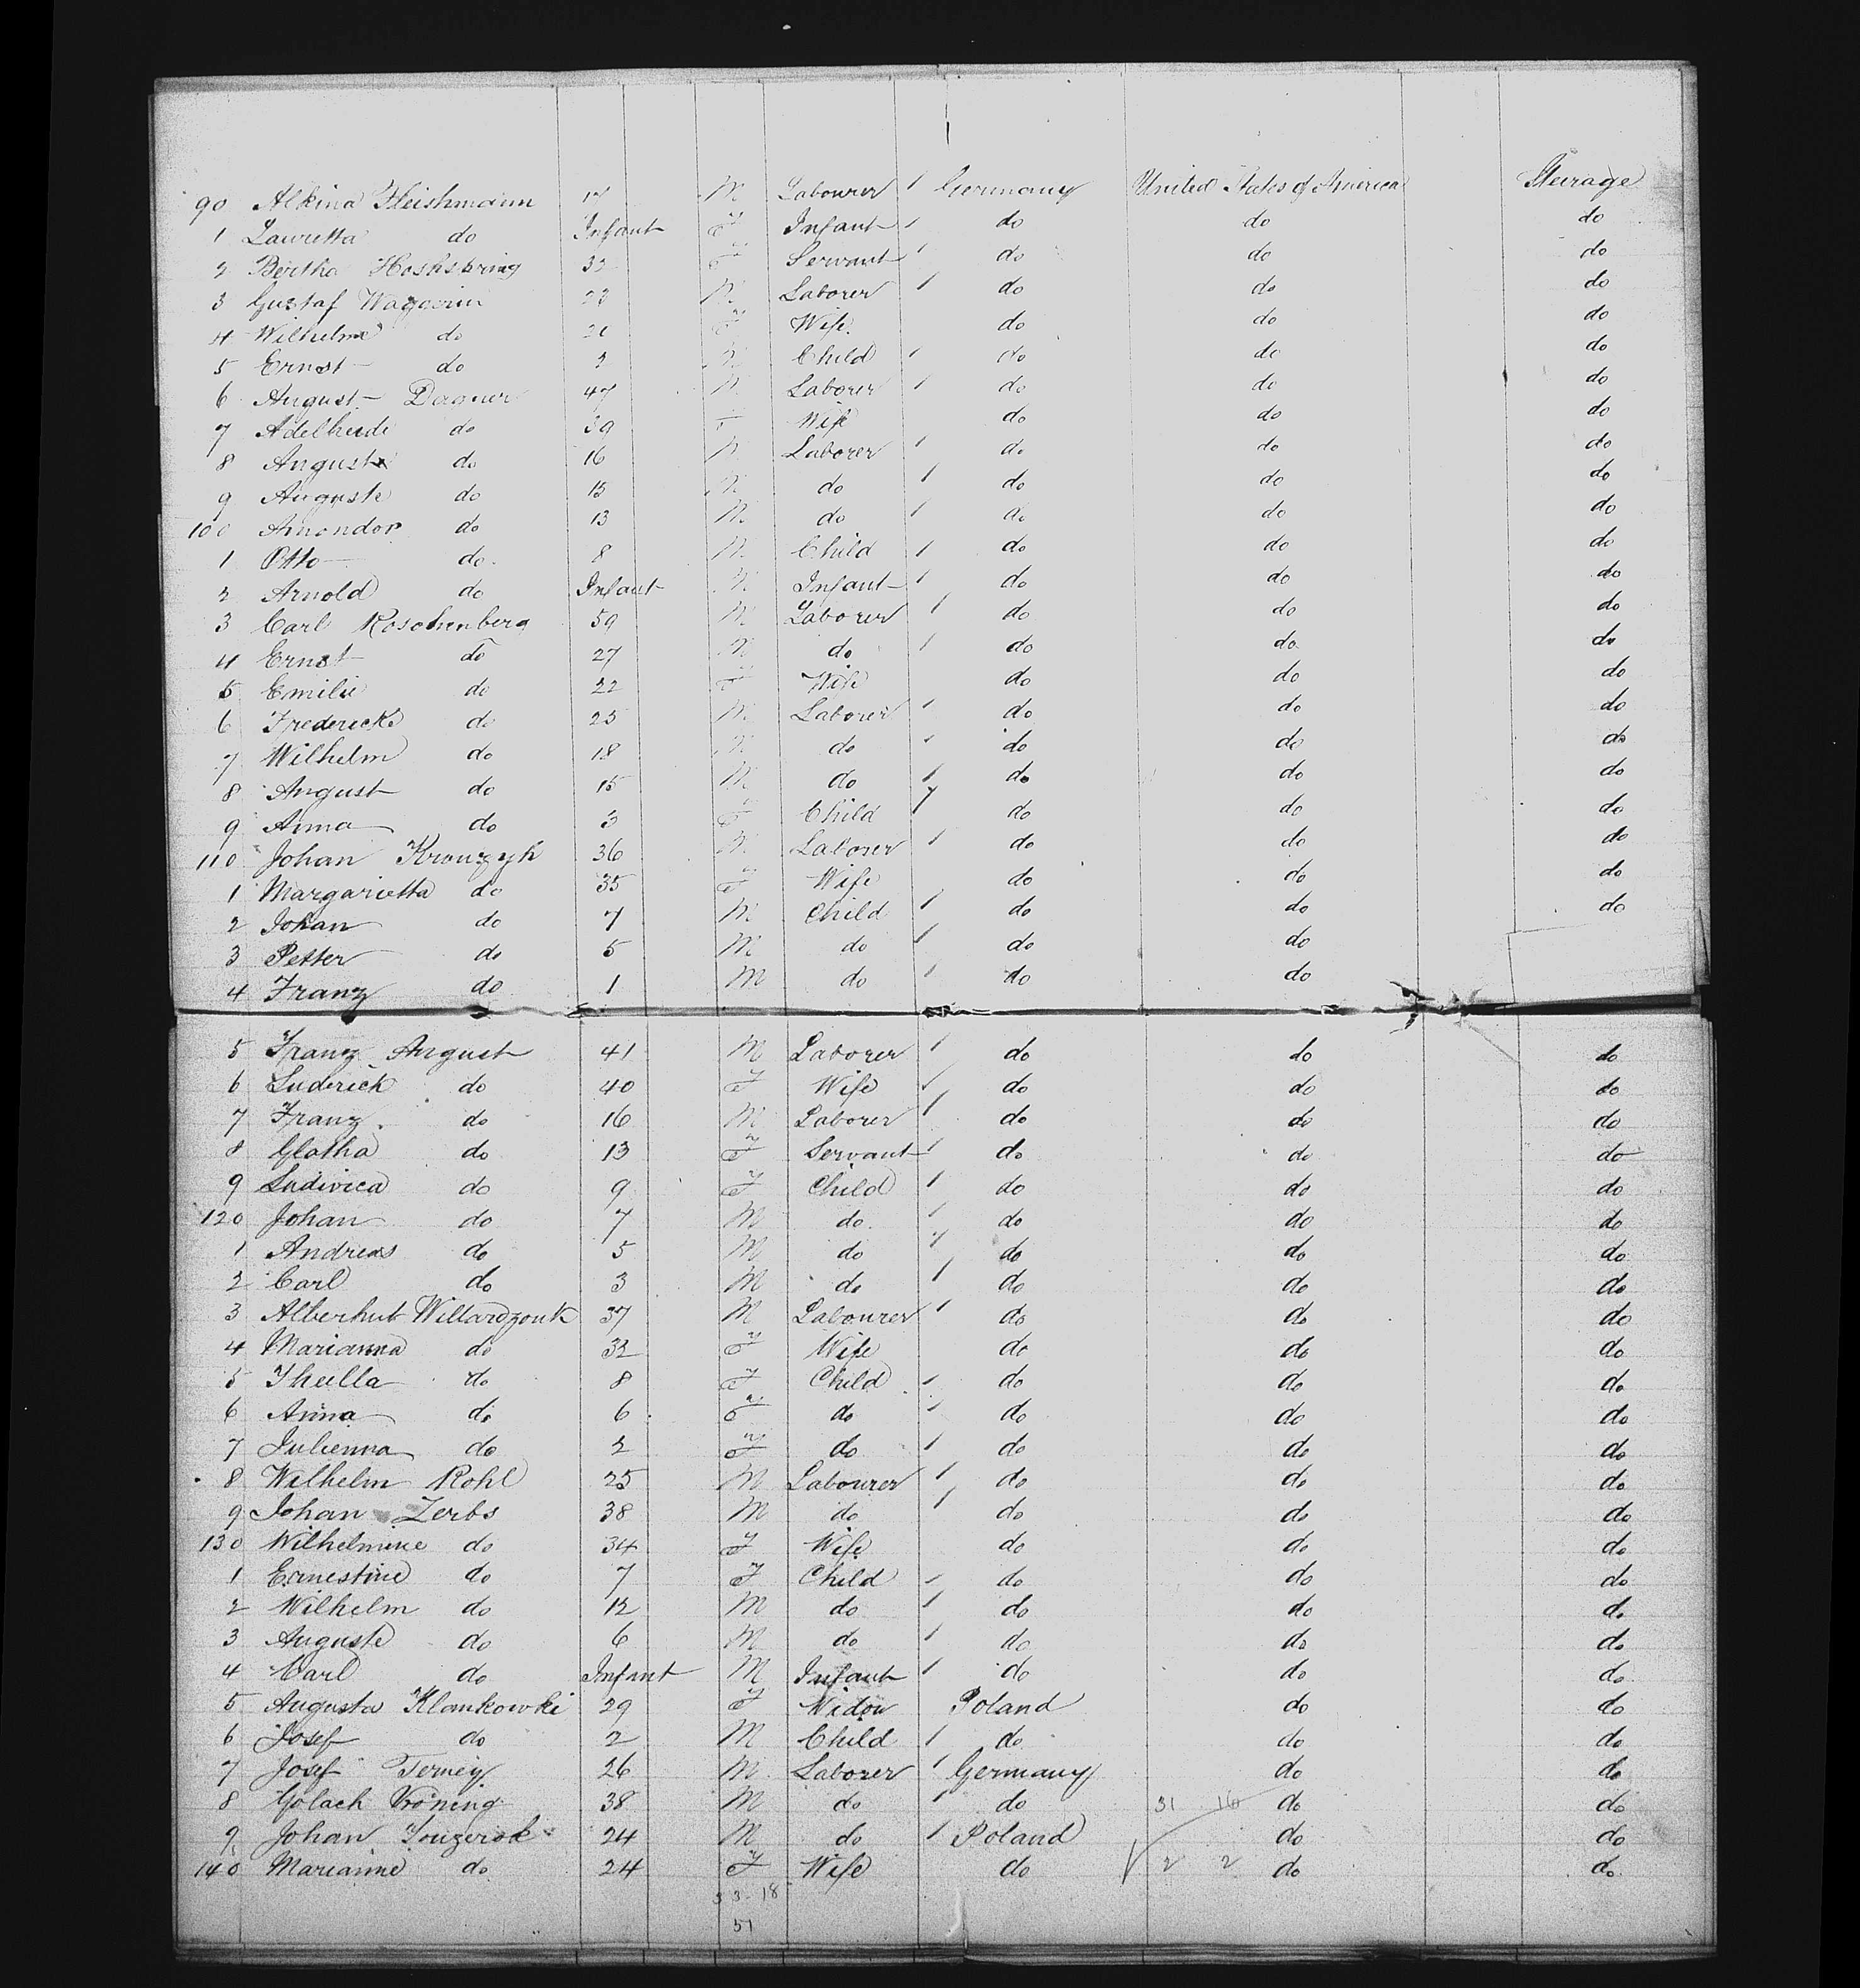 90 Alkina Fleishmann 17 M Labourer / Germany United States of America Steerage
1 Lauretta do Infant F Infant / do do do
2 Bertha Hoshsbring 33 F Servant / do do do
3 Gustaf Waggerin M Laborer / do do do
4 Wilhelme do F Wife do do do
5 Ernst do 3 M Child / do do do
6 August Dagner 47 M Laborer / do do do
7 Adelheide do 39 F Wife do do do
8 August do 16 M Laborer / do do do
9 Auguste do 15 M do / do do do
100 Amondor do 13 M do / do do do
1 Otto do 8 M Child / do do do
2 Arnold do Infant M Infant / do do do
3 Carl Roschenberg 59 M Laborer / do do do
4 Ernst do 27 M do / do do do
5 Emilie do 22 F Wife do do do
6 Fredericke do 25 M Laborer / do do do
7 Wilhelm do 18 M do / do do do
8 August do 15 M do / do do do
9 Anna do 3 F Child / do do do
110 Johan Kronzyk 36 M Laborer / do do do
1 Margarietta do 35 F Wife do do do
2 Johan do 7 M Child / do do do
3 Petter do 5 M do / do do
4 Franz do 1 M do / do do
5 Franz August 41 M Laborer / do do do
6 Luderick do 40 F Wife / do do do
7 Franz do 16 M Laborer / do do do
8 Glatha do 13 F Servant / do do do
9 Ludivica do 9 F Child / do do do
120 Johan do 7 M do / do do do
1 Andreas do 5 M do / do do do
2 Carl do 3 M do / do do do
3 Alberhut Willardzonk 37 M Labourer / do do do
4 Marianna do 32 F Wife do do do
5 Theilla do 8 F Child / do do do
6 Anna do 6 F do / do do do
7 Julienna do 2 F do / do do do
8 Wilhelm Rohl 25 M Labourer / do do do
9 Johan Zerbs 38 M do / do do do
130 Wilhelmine do 34 F Wife do do do
1 Ernestine do 7 F Child / do do do
2 Wilhelm do 12 M do / do do do
3 Auguste do 6 M do / do do do
4 Carl do Infant M Infant / do do do
5 Augusta Klankowki 29 F Widow Poland do do
6 Josef do 2 M Child / do do do
7 Josef Terney 26 M Laborer / Germany do do
8 Golach Kroning 38 M do / do 31 16 do do
9 Johan Touzerok 24 M do / Poland do do
140 Marianne do 24 F Wife do 2 2 do do
33-18
51